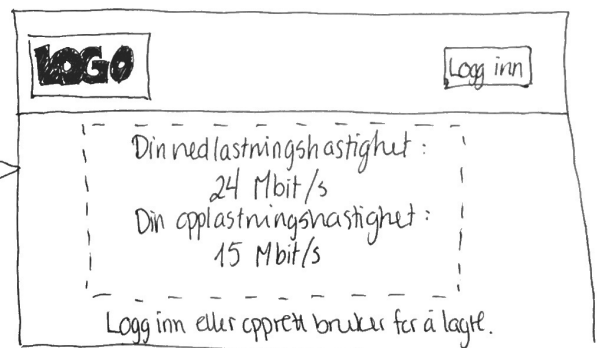 LOGO
Logg inn
Din nedlastningshastighet:
24 Mbit/s
Din opplastningshastighet:
15 Mbit/s
Logg inn eller opprett bruker for å lagre.